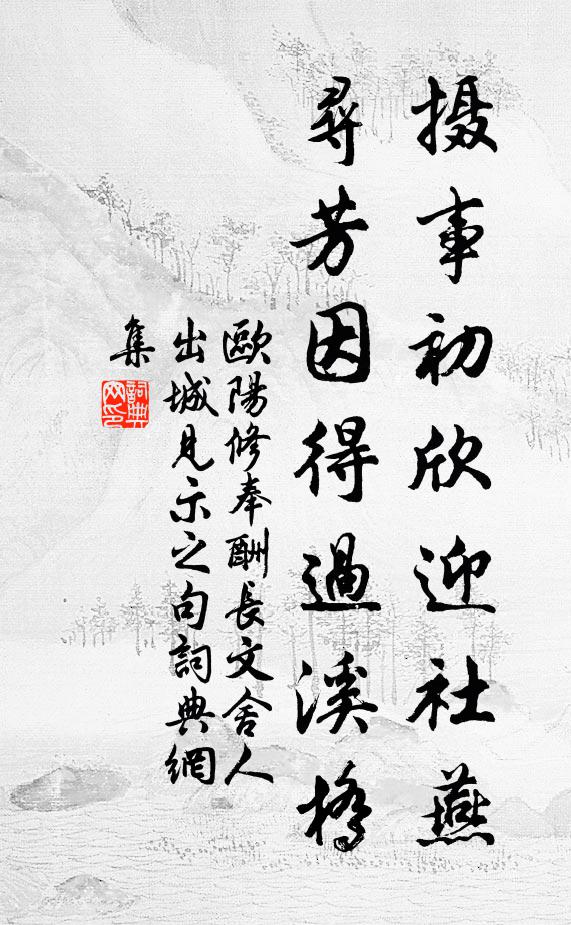 摄事初欣迎社燕
尋芳因得過溪橋
歐陽修奉酬長文舍人
出城見示之句詞典網
集
詞典網印